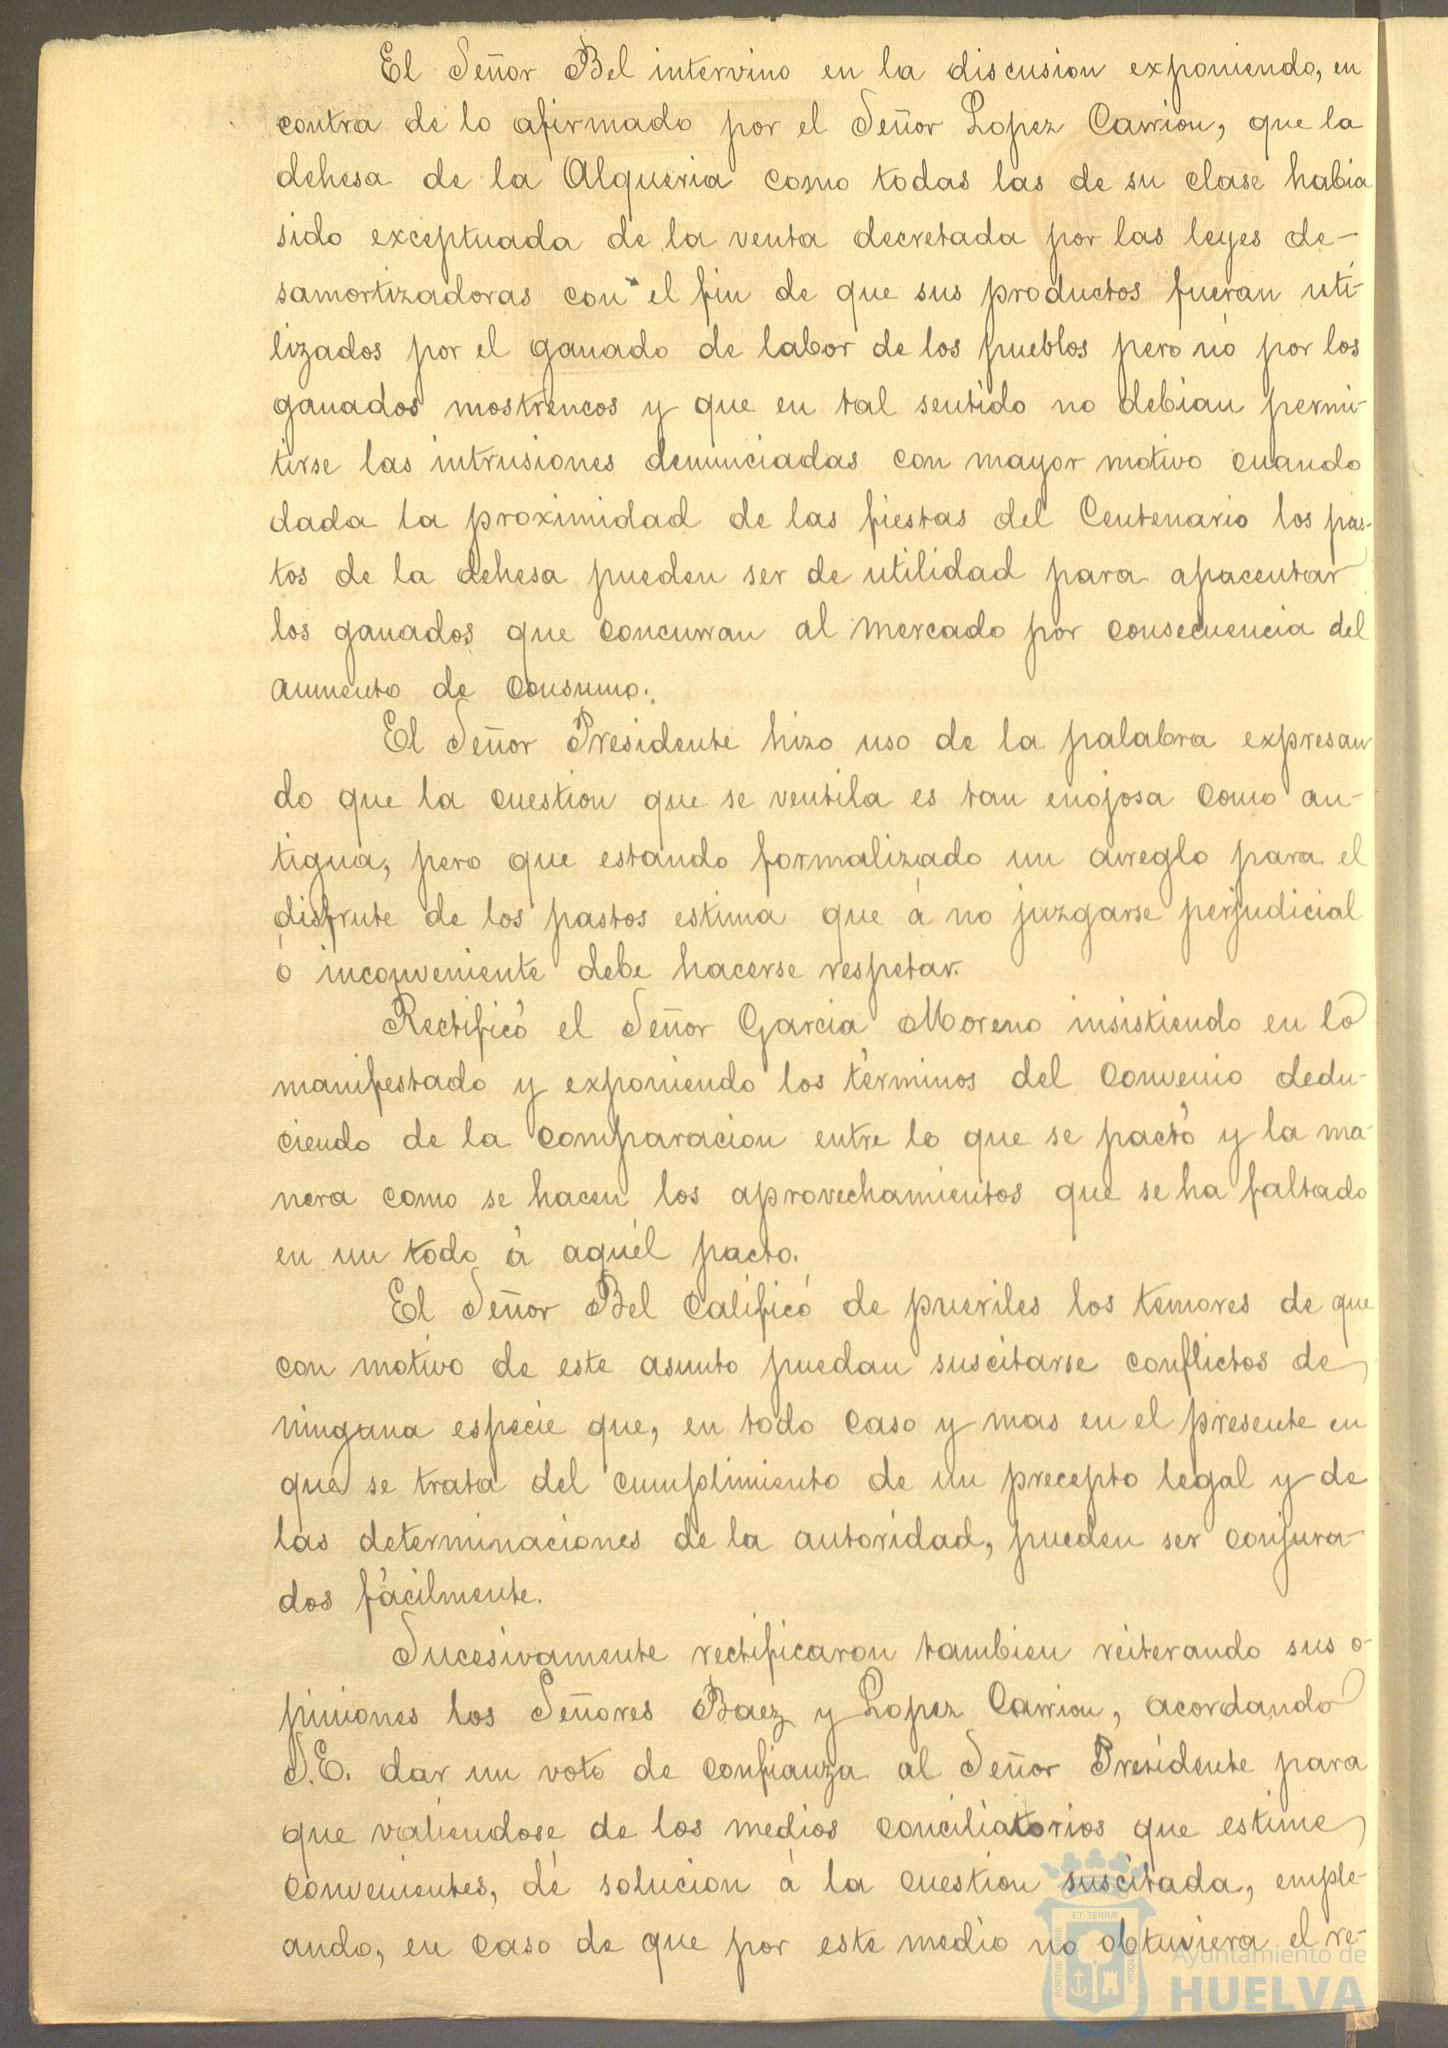 El Señor Bel intervino en la discusion exponiendo, en
contra de lo afirmado por el Señor Lopez Carrion, que la
dehesa de la Alqueria como todas las de su clase habia
sido exceptuada de la venta decretada por las leyes de-
samortizadoras con el fin de que sus productos fueran uti-
lizados por el ganado de labor de los pueblos pero nó por los
ganados mostrencos y que en tal sentido no debian permi-
tirse las intrusiones denunciadas con mayor motivo cuando
dada la proximidad de las fiestas del Centenario los pas-
tos de la dehesa pueden ser de utilidad para apacentar
los ganados que concurran al mercado por consecuencia del
aumento de consumo.
El Señor Presidente hizo uso de la palabra expresan
do que la cuestion que se ventila es tan enojosa como an-
tigua, pero que estando formalizado un arreglo para el
disfrute de los pastos estima que á no juzgarse perjudicial
ó inconveniente debe hacerse respetar.
Rectificó el Señor Garcia Moreno insistiendo en lo
manifestado y exponiendo los términos del convenio dedu-
ciendo de la comparacion entre lo que se pactó y la ma-
nera como se hacen los aprovechamientos que se ha faltado
en un todo á aquél pacto.
El Señor Bel calificó de pueriles los temores de que
con motivo de este asunto puedan suscitarse conflictos de
ninguna especie que, en todo caso y mas en el presente en
que se trata del cumplimiento de un precepto legal y de
las determinaciones de la autoridad, pueden ser conjura-
dos fácilmente.
Sucesivamente rectificaron tambien reiterando sus o-
piniones los Señores Baez y Lopez Carrion, acordando
S.E. dar un voto de confianza al Señor Presidente para
que valiendose de los medios conciliatorios que estime
convenientes, dé solucion á la cuestion suscitada, emple-
ando, en caso de que por este medio no obtuviera el re-
PORTUS MARIS
ET TERRÆ
CUSTODIA
Ayuntamiento de
HUELVA